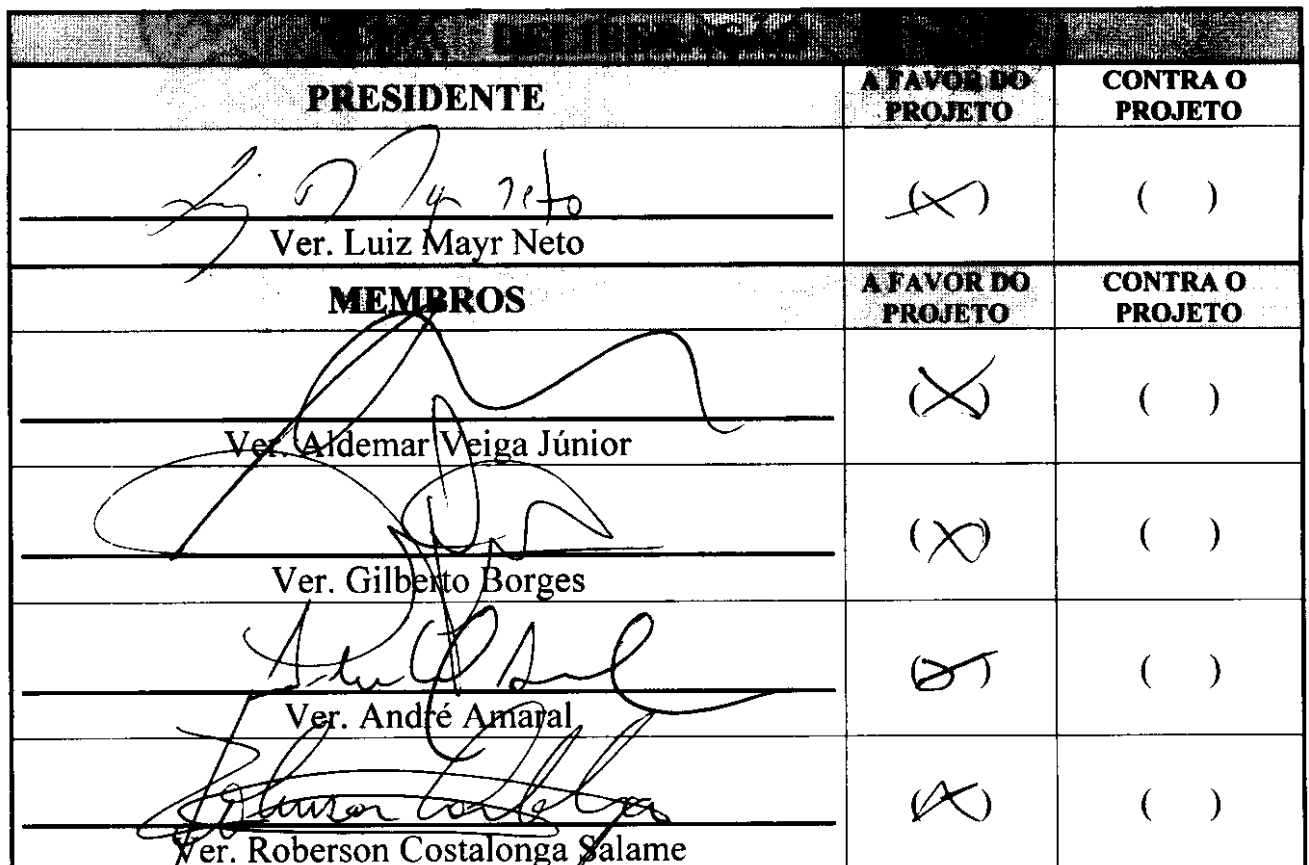 DELIBERAÇÃO
PRESIDENTE A FAVOR DO PROJETO CONTRA O PROJETO
(X) ( )
Ver. Luiz Mayr Neto
MEMBROS A FAVOR DO PROJETO CONTRA O PROJETO
(X) ( )
Ver. Aldemar Veiga Júnior
(X) ( )
Ver. Gilberto Borges
(X) ( )
Ver. André Amaral
(X) ( )
Ver. Roberson Costalonga Salame